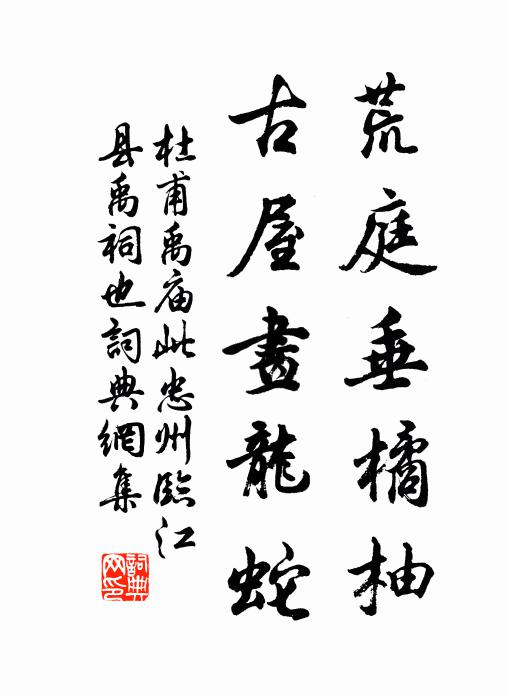 荒庭垂橘柚
古屋畫龍蛇
杜甫禹庙此忠州臨江
县禹祠也詞典網集
詞典网印